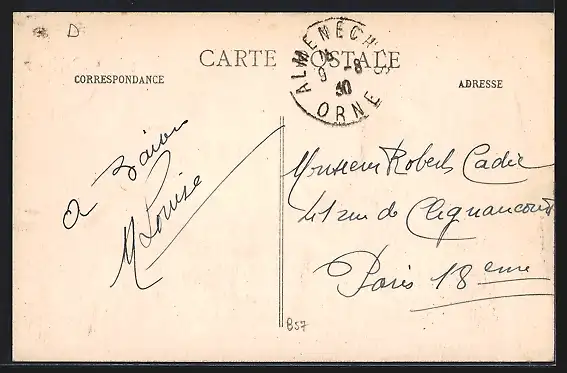 D
CARTE POSTALE
CORRESPONDANCE
ADRESSE
ALMENECHES
8
30
ORNE
M Louise
Monsieur Robert Cadic
41 rue de Clignancourt
Paris 18 eme
B57